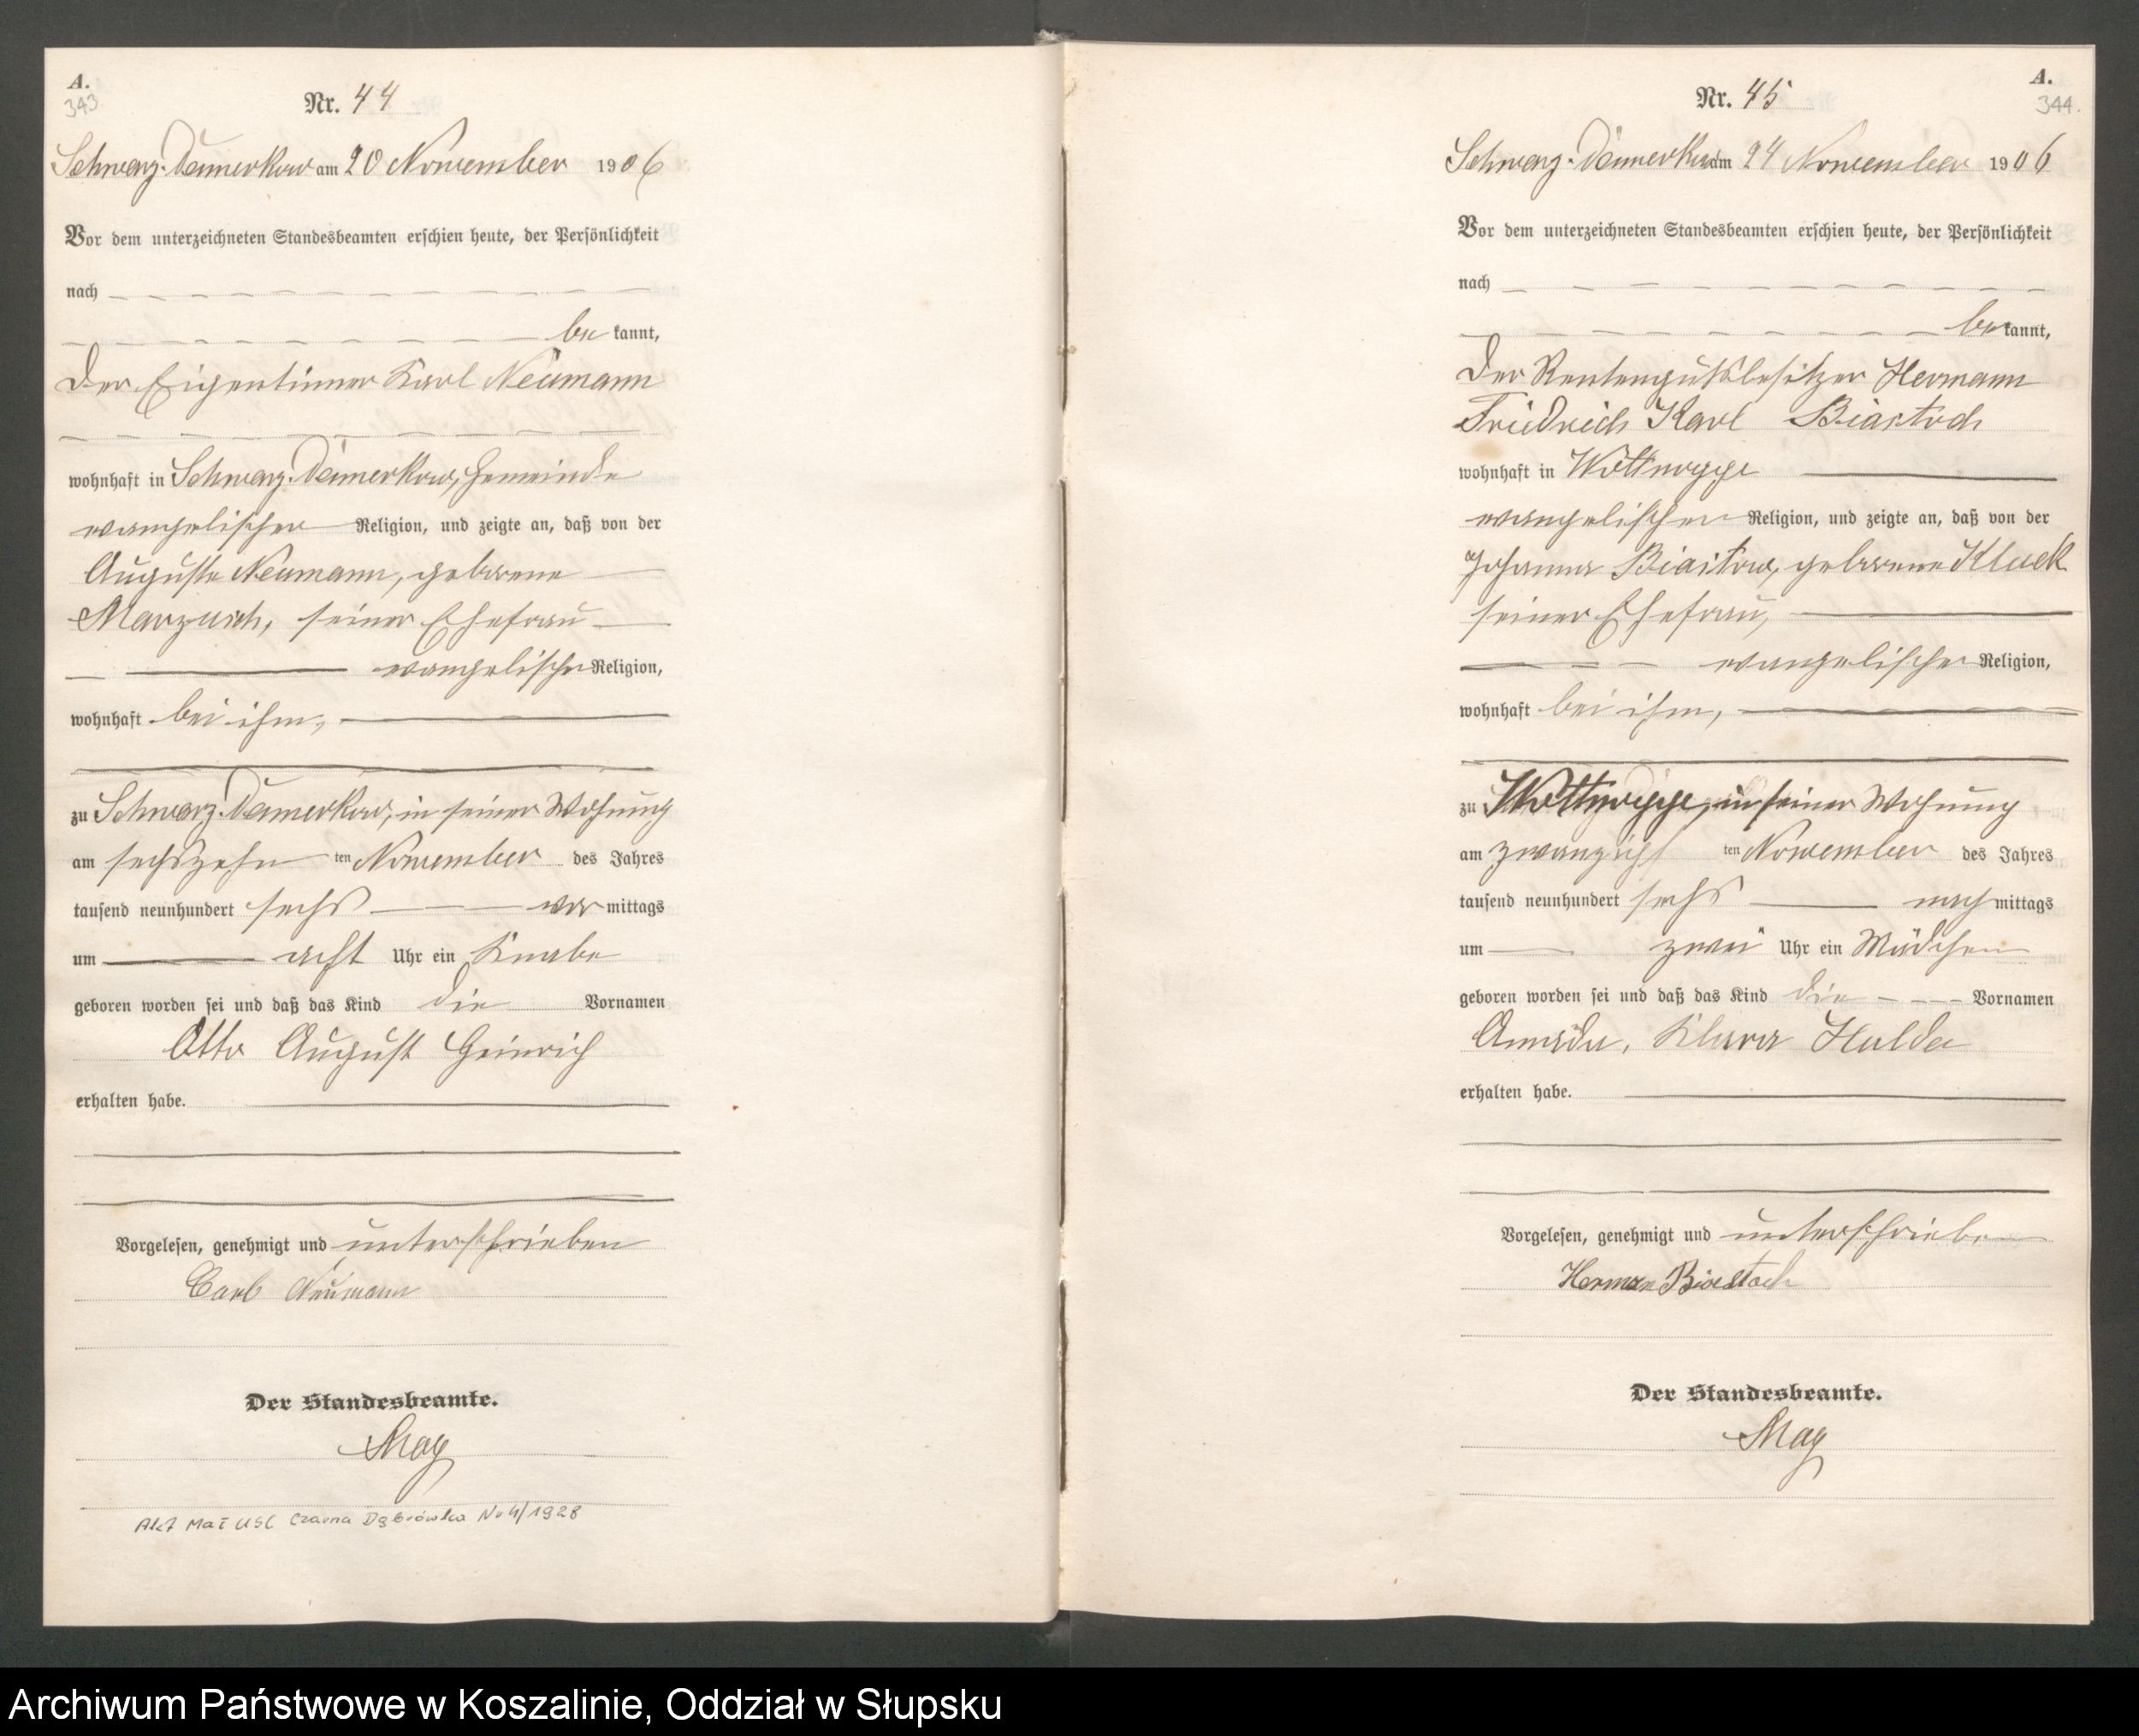 A.
343
Nr. 44
Schwarz-Damerkow am 20 November 1906
Vor dem unterzeichneten Standesbeamten erschien heute, der Persönlichkeit
nach
be kannt,
der Eigentümer Karl Neumann
wohnhaft in Schwarz-Damerkow, Gemeinde
evangelischer Religion, und zeigte an, daß von der
Auguste Neumann, geborene
seiner Ehefrau
evangelischer Religion,
wohnhaft bei ihm,
zu Schwarz-Damerkow, in seiner Wohnung
am sechszehn ten November des Jahres
tausend neunhundert sechs vor mittags
um acht Uhr ein Knabe
geboren worden sei und daß das Kind die Vornamen
Otto August Heinrich
erhalten habe.
Vorgelesen, genehmigt und unterschrieben
Carl Neumann
Der Standesbeamte.
Akt Mał USC Czarna Dąbrówka Nr 4/1928
A.
344.
Nr. 45
Schwarz-Damerkow am 24 November 1906
Vor dem unterzeichneten Standesbeamten erschien heute, der Persönlichkeit
nach
be kannt,
der Rentengutsbesitzer Hermann
Friedrich Karl Biastoch
wohnhaft in Wottnogge
evangelischer Religion, und zeigte an, daß von der
Johanna geborene Kluck
seiner Ehefrau,
evangelischer Religion,
wohnhaft bei ihm,
zu Wottnogge, in seiner Wohnung
am zwanzigs ten November des Jahres
tausend neunhundert sechs nach mittags
um zwei Uhr ein Mädchen
geboren worden sei und daß das Kind die Vornamen
Klara Hulda
erhalten habe.
Vorgelesen, genehmigt und unterschrieben
Herman Biastoch
Der Standesbeamte.
Archiwum Państwowe w Koszalinie, Oddział w Słupsku